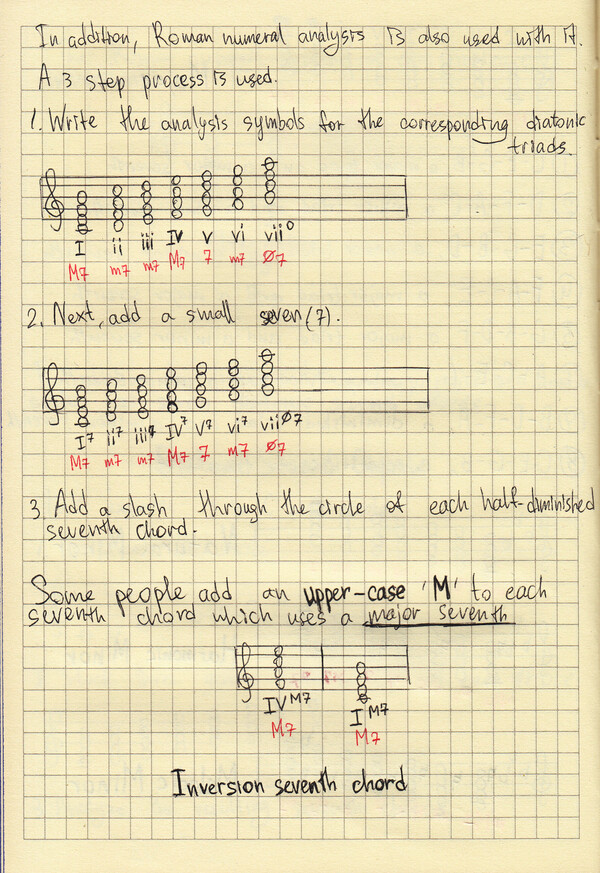 In addition, Roman numeral analysis is also used with it.
A 3 step process is used.
1. Write the analysis symbols for the corresponding diatonic
triads.
I ii iii IV V vi vii°
M7 m7 m7 M7 7 m7 ø7
2. Next, add a small seven (7).
I⁷ ii⁷ iii⁷ IV⁷ V⁷ vi⁷ viiø⁷
M7 m7 m7 M7 7 m7 ø7
3. Add a slash through the circle of each half-diminished
seventh chord.
Some people add an upper-case 'M' to each
seventh chord which uses a major seventh
IVᴹ⁷ Iᴹ⁷
M7 M7
Inversion seventh chord